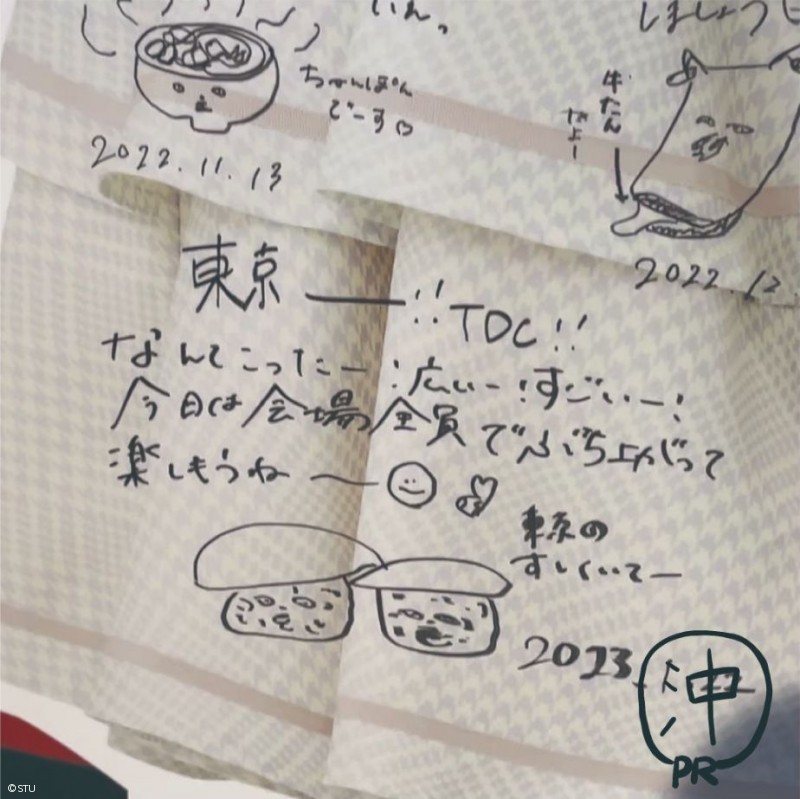 いん。
しましょう
ちゃんぽん
でーす♡
牛たん
だよー
2022.11.13
2022.12.
東京ー!!TDC!!
なんてこったー!広いー!すごいー!
今日は会場全員でぶち上がって
楽しもうねー
東京の
すしくいてー
2023.
沖
PR
©STU